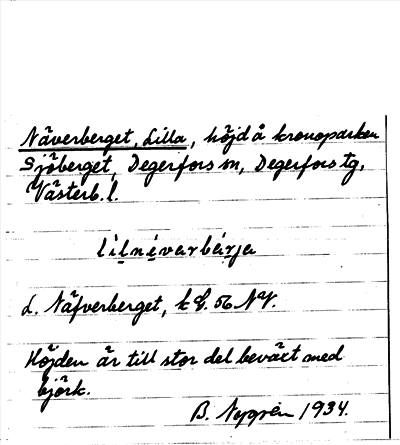 Näverberget, Lilla, höjd å kronoparken
Sjöberget, Degerfors sn, Degerfors tg,
Västerb. l.
lìlnévarbǽrja
L. Näfverberget, k bl. 56 NV.
Höjden är till stor del beväxt med
björk.
B. Nygrén 1934.